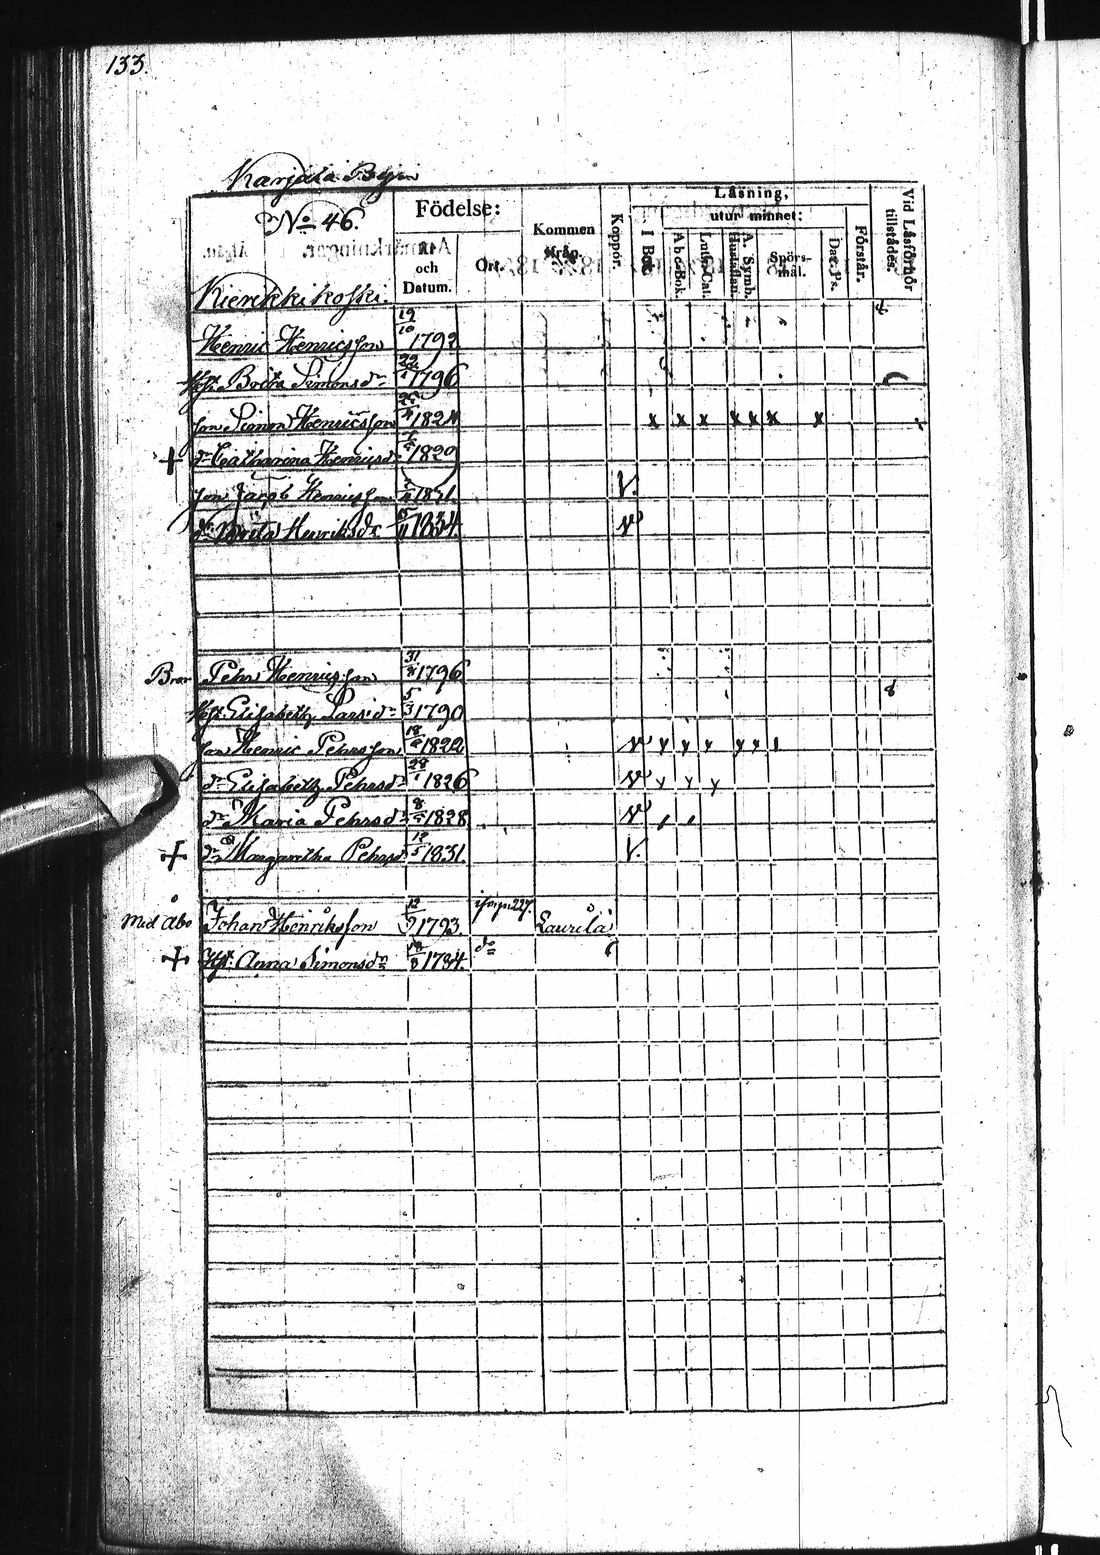 133.
Karjala By
No 46.
Födelse:
och
Datum.
Ort.
Kommen
ifrån.
Koppor.
Läsning,
utur minnet:
I Bok.
Abc-Bok.
Luth. Cat.
Hustaflan.
A. Symb.
Spörs-
mål.
Dav. Ps.
Förstår.
Vid Läsförhör
tillstädes.
Kierikkikoski.
Henric Henricsson 19/10 1792
Hust. Brita Simonsdr 1796
son Simon Henricsson 1824 x x x x x x x
+ dr Catharina Henricsdr 1829
son Jacob Henricsson 1831. V.
dr Brita Henriksdr 5/11 1834. V
Bror Pehr Henricsson 31 1796
Hust. Elisabeth Larsdr 5/3 1790
son Henric Pehrsson 18 1822 V
dr Elisabeth Pehrsdr 28 1826 V
dr Maria Pehrsdr 8 1828 V
+ dr Margaretha Pehrsdr 12/5 1831. V.
Med Abo Johan Henriksson 12/9 1793. 227. Laurila
+ Hust. Anna Simonsdr 1784. do